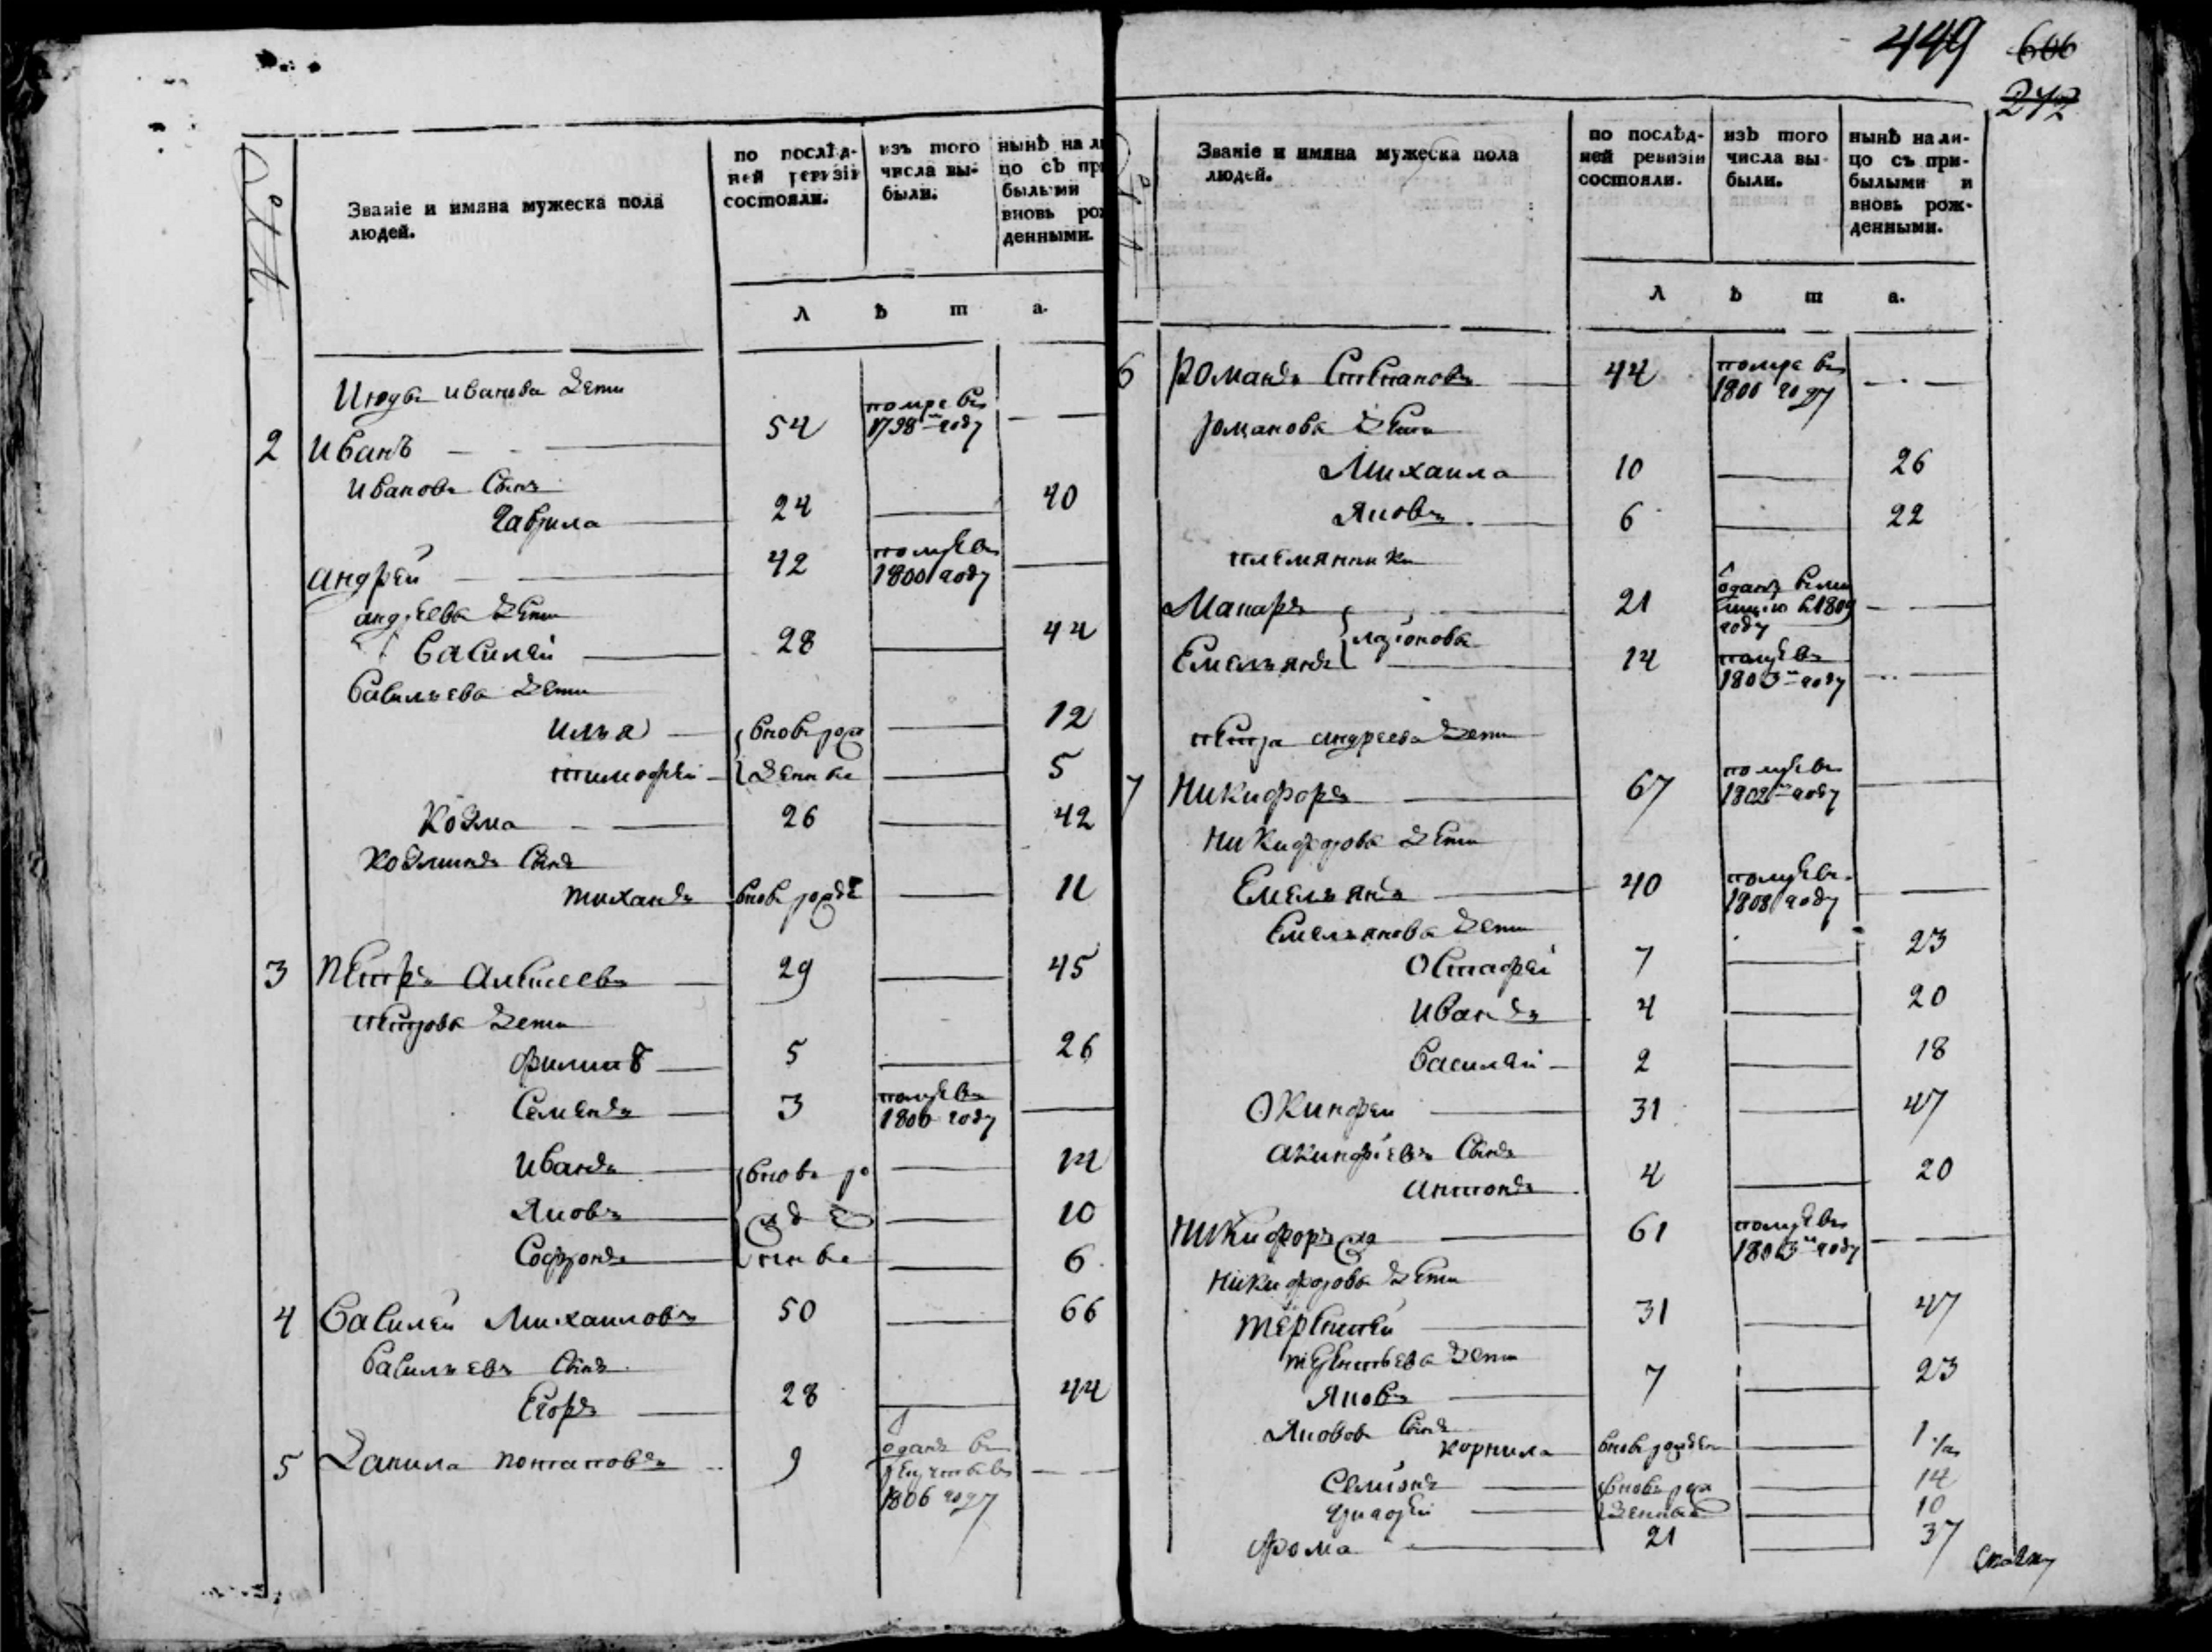 449 606
272
№
Званіе и имяна мужеска пола
людей.
по послѣд-
ней ревизіи
состояли.
изъ того
числа вы-
были.
нынѣ на ли
цо съ при
былыми
вновь рож
денными.
л ѣ т а.
Ивановы дети
2 Иванъ 54 помре въ 1798м году
Ивановъ Сынъ
Гаврила 24 40
Андрей 42 помре въ 1800 году
андреевы дети
Василей 28 44
Васильевы дети
илья вновь рож 12
тимофей денные 5
Козма 26 42
Козминъ Сынъ
тиханъ вновь рожде 11
3 Петръ Алексеевъ 29 45
петровы дети
филипъ 5 26
Семенъ 3 помре въ 1806 году
Иванъ вновь ро 14
Яковъ жде 10
Софронъ нные 6
4 Василей Михаиловъ 50 66
Васильевъ Сынъ
Егоръ 28 44
5 Данила потаповъ 9 оданъ въ рекруты въ 1806 году
Званіе и имяна мужеска пола
людей.
по послѣд-
ней ревизіи
состояли.
изъ того
числа вы-
были.
нынѣ на ли-
цо съ при-
былыми и
вновь рож-
денными.
л ѣ т а.
6 Романъ Степановъ 44 помре въ 1806 году
романовы дети
Михаила 10 26
Яковъ 6 22
племянники
Макаръ 21 оданъ въ 1809 году
Емельянъ 14 помре въ 1803м году
петра андреева дети
7 Никифоръ 67 помре въ 1802м году
Никифоровы дети
Емельянъ 40 помре въ 1808 году
Емельяновы дети
Остафей 7 23
Иванъ 4 20
Василей 2 18
Окинфеи 31 47
Акинфіевъ Сынъ
антонъ 4 20
Никифоръ 61 помре въ 1803м году
Никифоровы дети
Терентей 31 47
терентьевы дети
Яковъ 7 23
Яковов Сынъ
корнила вновь рожден 1
Семіонъ вновь рож 14
денные 10
фома 21 37